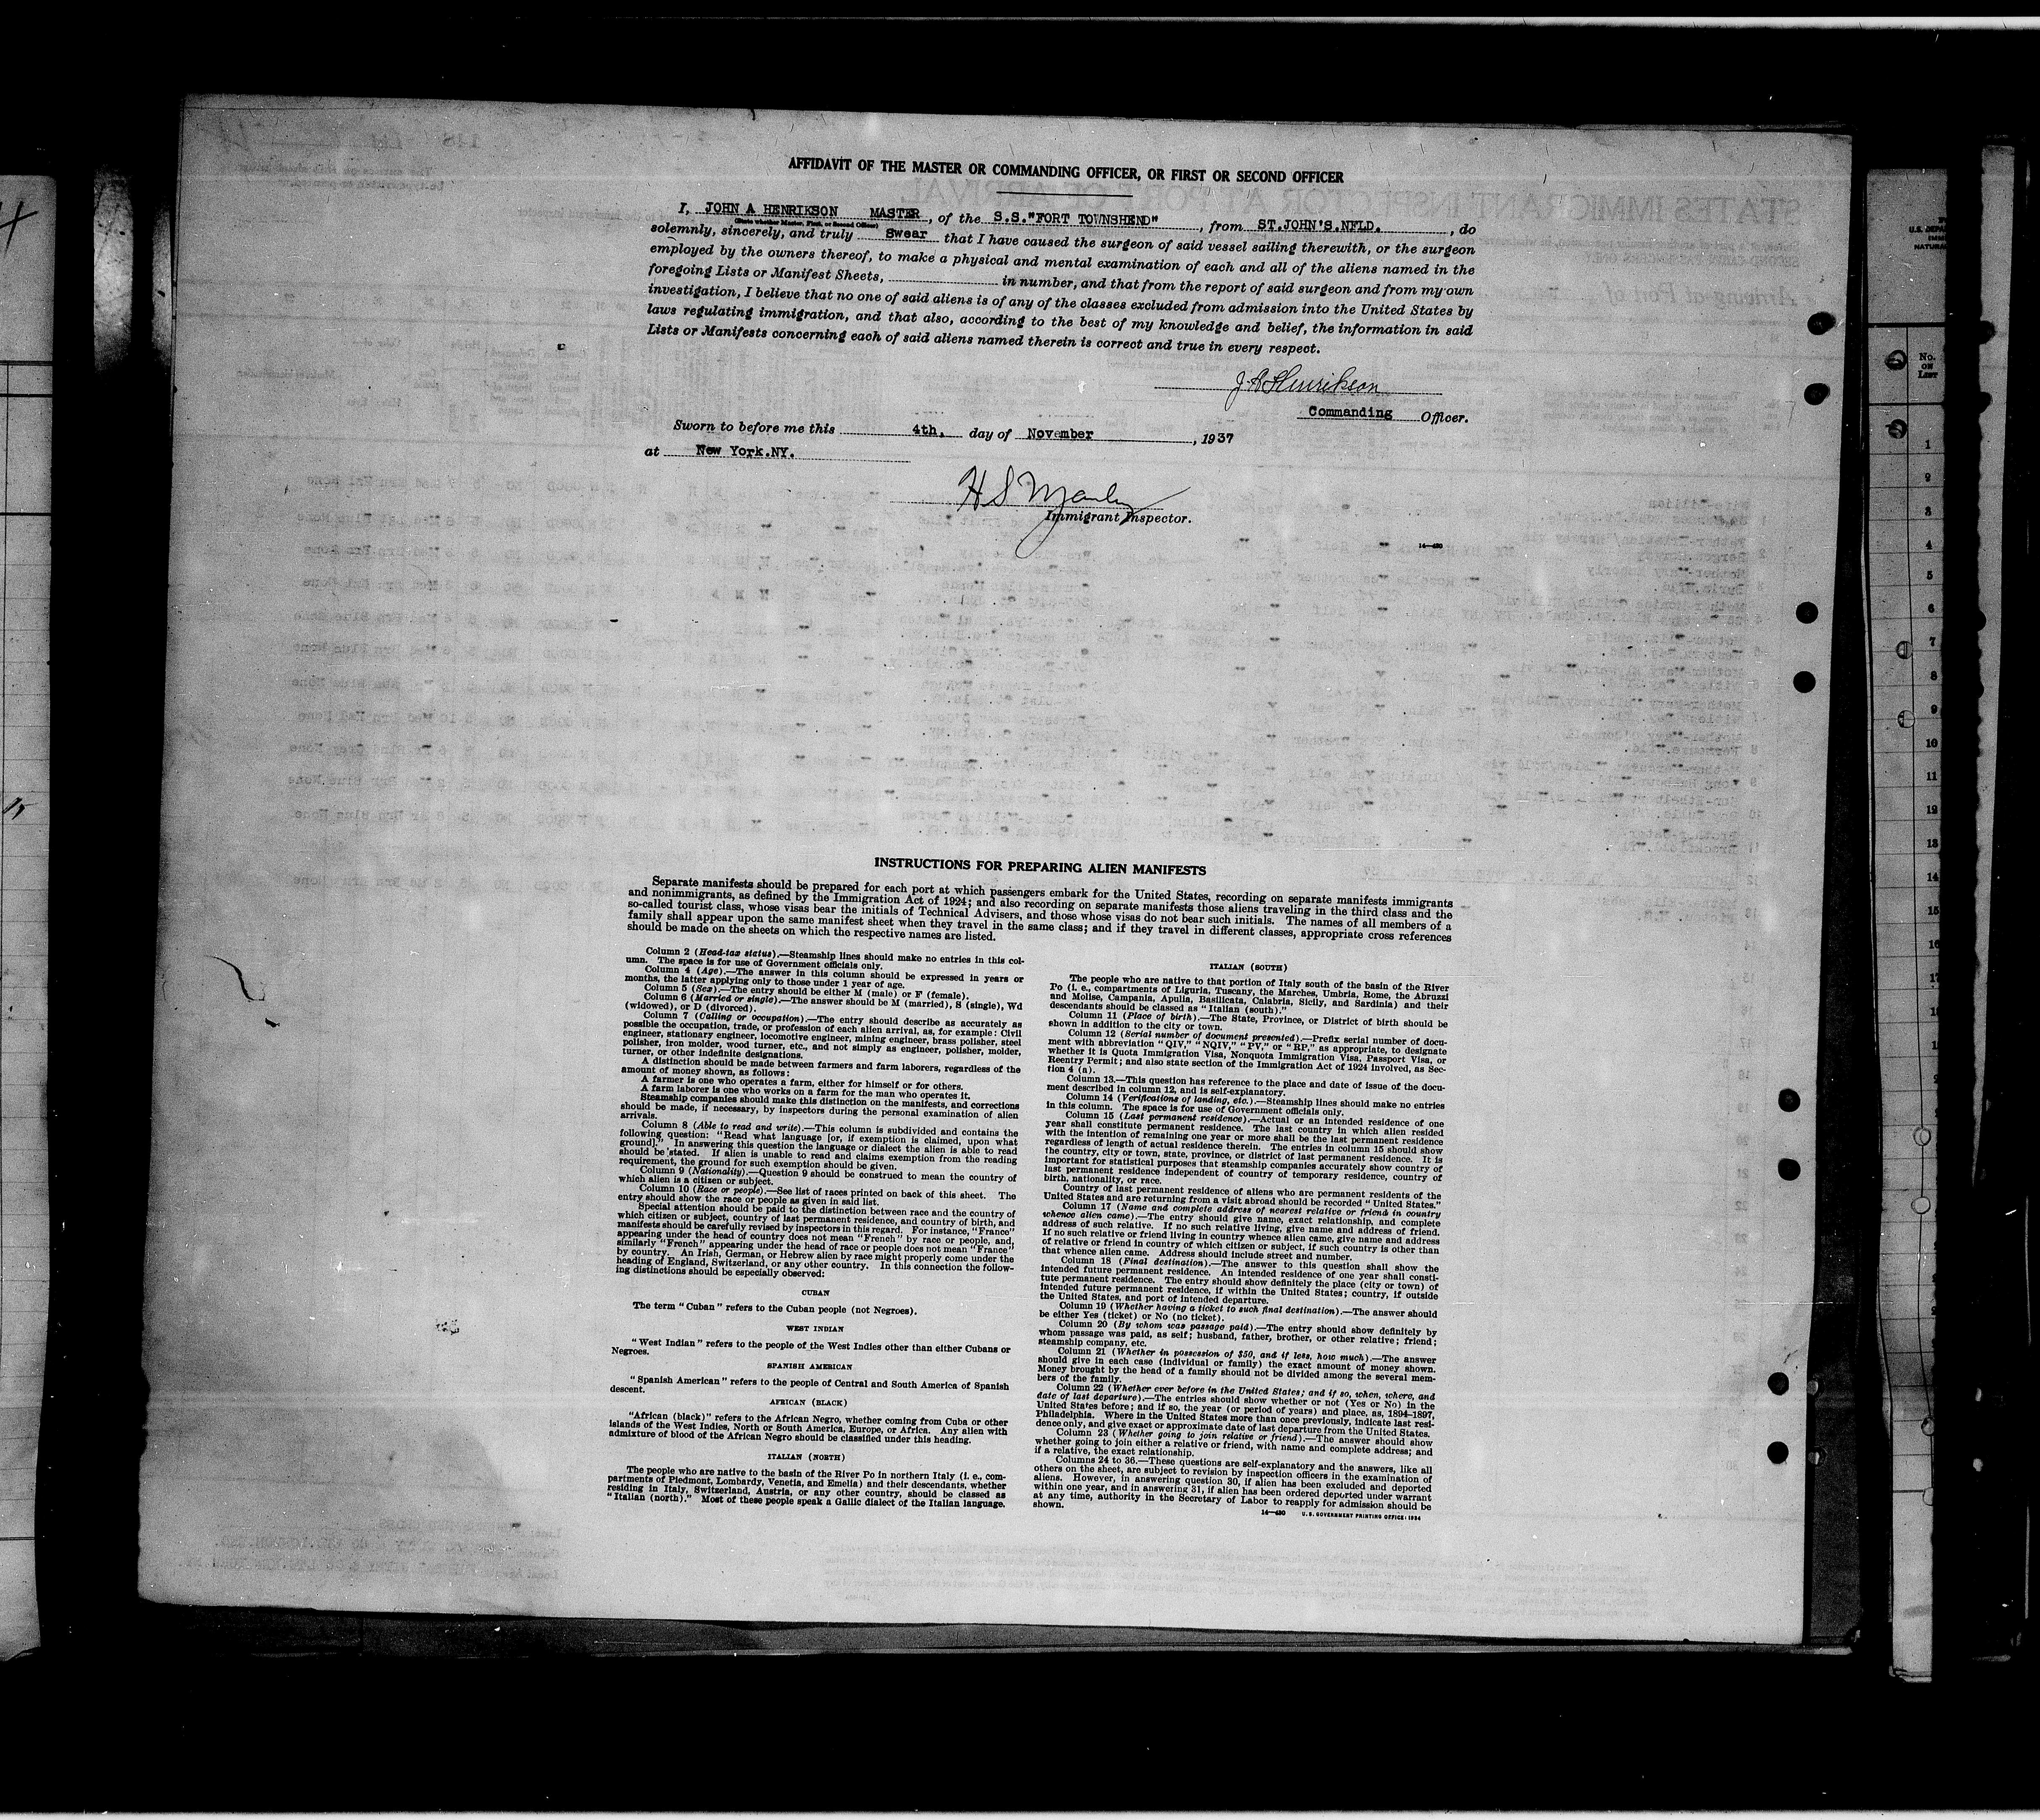 AFFIDAVIT OF THE MASTER OR COMMANDING OFFICER, OR FIRST OR SECOND OFFICER
I, JOHN A HENRIKSON MASTER, of the S.S."FORT TOWNSHEND", from ST.JOHN'S.NFLD., do
(State whether Master, First, or Second Officer)
solemnly, sincerely, and truly Swear that I have caused the surgeon of said vessel sailing therewith, or the surgeon
employed by the owners thereof, to make a physical and mental examination of each and all of the aliens named in the
foregoing Lists or Manifest Sheets, in number, and that from the report of said surgeon and from my own
investigation, I believe that no one of said aliens is of any of the classes excluded from admission into the United States by
laws regulating immigration, and that also, according to the best of my knowledge and belief, the information in said
Lists or Manifests concerning each of said aliens named therein is correct and true in every respect.
J A Henrikson
Commanding Officer.
Sworn to before me this 4th. day of November, 1937
at New York.NY.
H S Manley
Immigrant Inspector.
14—430
INSTRUCTIONS FOR PREPARING ALIEN MANIFESTS
Separate manifests should be prepared for each port at which passengers embark for the United States, recording on separate manifests immigrants
and nonimmigrants, as defined by the Immigration Act of 1924; and also recording on separate manifests those aliens traveling in the third class and the
so-called tourist class, whose visas bear the initials of Technical Advisers, and those whose visas do not bear such initials. The names of all members of a
family shall appear upon the same manifest sheet when they travel in the same class; and if they travel in different classes, appropriate cross references
should be made on the sheets on which the respective names are listed.
Column 2 (Head-tax status).—Steamship lines should make no entries in this col-
umn. The space is for use of Government officials only.
Column 4 (Age).—The answer in this column should be expressed in years or
months, the latter applying only to those under 1 year of age.
Column 5 (Sex).—The entry should be either M (male) or F (female).
Column 6 (Married or single).—The answer should be M (married), S (single), Wd
(widowed), or D (divorced).
Column 7 (Calling or occupation).—The entry should describe as accurately as
possible the occupation, trade, or profession of each alien arrival, as, for example: Civil
engineer, stationary engineer, locomotive engineer, mining engineer, brass polisher, steel
polisher, iron molder, wood turner, etc., and not simply as engineer, polisher, molder,
turner, or other indefinite designations.
A distinction should be made between farmers and farm laborers, regardless of the
amount of money shown, as follows:
A farmer is one who operates a farm, either for himself or for others.
A farm laborer is one who works on a farm for the man who operates it.
Steamship companies should make this distinction on the manifests, and corrections
should be made, if necessary, by inspectors during the personal examination of alien
arrivals.
Column 8 (Able to read and write).—This column is subdivided and contains the
following question: "Read what language [or, if exemption is claimed, upon what
ground]." In answering this question the language or dialect the alien is able to read
should be stated. If alien is unable to read and claims exemption from the reading
requirement, the ground for such exemption should be given.
Column 9 (Nationality).—Question 9 should be construed to mean the country of
which alien is a citizen or subject.
Column 10 (Race or people).—See list of races printed on back of this sheet. The
entry should show the race or people as given in said list.
Special attention should be paid to the distinction between race and the country of
which citizen or subject, country of last permanent residence, and country of birth, and
manifests should be carefully revised by inspectors in this regard. For instance, "France"
appearing under the head of country does not mean "French" by race or people, and,
similarly "French" appearing under the head of race or people does not mean "France"
by country. An Irish, German, or Hebrew alien by race might properly come under the
heading of England, Switzerland, or any other country. In this connection the follow-
ing distinctions should be especially observed:
CUBAN
The term "Cuban" refers to the Cuban people (not Negroes).
WEST INDIAN
"West Indian" refers to the people of the West Indies other than either Cubans or
Negroes.
SPANISH AMERICAN
"Spanish American" refers to the people of Central and South America of Spanish
descent.
AFRICAN (BLACK)
"African (black)" refers to the African Negro, whether coming from Cuba or other
islands of the West Indies, North or South America, Europe, or Africa. Any alien with
admixture of blood of the African Negro should be classified under this heading.
ITALIAN (NORTH)
The people who are native to the basin of the River Po in northern Italy (i. e., com-
partments of Piedmont, Lombardy, Venetia, and Emelia) and their descendants, whether
residing in Italy, Switzerland, Austria, or any other country, should be classed as
"Italian (north)." Most of these people speak a Gallic dialect of the Italian language.
ITALIAN (SOUTH)
The people who are native to that portion of Italy south of the basin of the River
Po (i. e., compartments of Liguria, Tuscany, the Marches, Umbria, Rome, the Abruzzi
and Molise, Campania, Apulia, Basilicata, Calabria, Sicily, and Sardinia) and their
descendants should be classed as "Italian (south)."
Column 11 (Place of birth).—The State, Province, or District of birth should be
shown in addition to the city or town.
Column 12 (Serial number of document presented).—Prefix serial number of docu-
ment with abbreviation "QIV," "NQIV," "PV," or "RP," as appropriate, to designate
whether it is Quota Immigration Visa, Nonquota Immigration Visa, Passport Visa, or
Reentry Permit; and also state section of the Immigration Act of 1924 involved, as Sec-
tion 4 (a).
Column 13.—This question has reference to the place and date of issue of the docu-
ment described in column 12, and is self-explanatory.
Column 14 (Verifications of landing, etc.).—Steamship lines should make no entries
in this column. The space is for use of Government officials only.
Column 15 (Last permanent residence).—Actual or an intended residence of one
year shall constitute permanent residence. The last country in which alien resided
with the intention of remaining one year or more shall be the last permanent residence
regardless of length of actual residence therein. The entries in column 15 should show
the country, city or town, state, province, or district of last permanent residence. It is
important for statistical purposes that steamship companies accurately show country of
last permanent residence independent of country of temporary residence, country of
birth, nationality, or race.
Country of last permanent residence of aliens who are permanent residents of the
United States and are returning from a visit abroad should be recorded "United States."
Column 17 (Name and complete address of nearest relative or friend in country
whence alien came).—The entry should give name, exact relationship, and complete
address of such relative. If no such relative living, give name and address of friend.
If no such relative or friend living in country whence alien came, give name and address
of relative or friend in country of which citizen or subject, if such country is other than
that whence alien came. Address should include street and number.
Column 18 (Final destination).—The answer to this question shall show the
intended future permanent residence. An intended residence of one year shall consti-
tute permanent residence. The entry should show definitely the place (city or town) of
intended future permanent residence, if within the United States; country, if outside
the United States, and port of intended departure.
Column 19 (Whether having a ticket to such final destination).—The answer should
be either Yes (ticket) or No (no ticket).
Column 20 (By whom was passage paid).—The entry should show definitely by
whom passage was paid, as self; husband, father, brother, or other relative; friend;
steamship company, etc.
Column 21 (Whether in possession of $50, and if less, how much).—The answer
should give in each case (individual or family) the exact amount of money shown.
Money brought by the head of a family should not be divided among the several mem-
bers of the family.
Column 22 (Whether ever before in the United States; and if so, when, where, and
date of last departure).—The entries should show whether or not (Yes or No) in the
United States before; and if so, the year (or period of years) and place, as, 1894–1897,
Philadelphia. Where in the United States more than once previously, indicate last resi-
dence only, and give exact or approximate date of last departure from the United States.
Column 23 (Whether going to join relative or friend).—The answer should show
whether going to join either a relative or friend, with name and complete address; and
if a relative, the exact relationship.
Columns 24 to 36.—These questions are self-explanatory and the answers, like all
others on the sheet, are subject to revision by inspection officers in the examination of
aliens. However, in answering question 30, if alien has been excluded and deported
within one year, and in answering 31, if alien has been ordered deported under warrant
at any time, authority in the Secretary of Labor to reapply for admission should be
shown.
14—430 U. S. GOVERNMENT PRINTING OFFICE: 1934
No.
ON
LIST
1
2
3
4
5
6
7
8
9
10
11
12
13
14
15
16